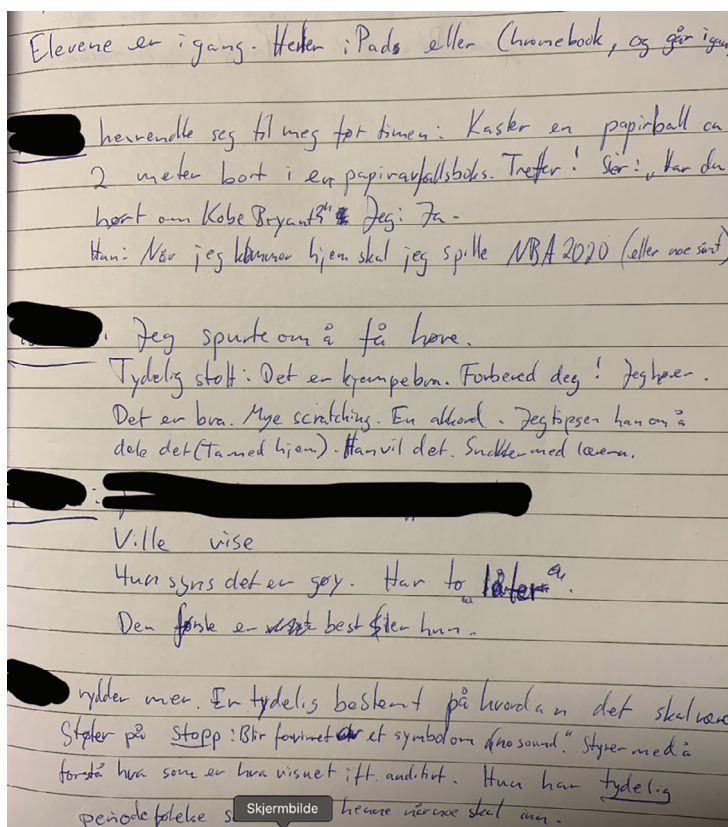 Elevene er igang. Henter iPads eller Chromebook, og går igan
henvendte seg til meg før timen: Kaster en papirball ca
2 meter bort i en papiravfallsboks. Treffer! Sier: „Har du
hørt om Kobe Bryant?" Jeg: Ja.
Han: Når jeg kommer hjem skal jeg spille NBA 2020 (eller noe sånt)
Jeg spurte om å få høre.
Tydelig stolt: Det er kjempebra. Forbered deg! Jeg hører.
Det er bra. Mye scratching. En akkord. Jeg tipser han om å
dele det (Ta med hjem). Han vil det. Snakker med læreren.
:
Ville vise
Hun syns det er gøy. Har to „låter".
Den første er best sier hun.
rydder mer. Er tydelig bestemt på hvordan det skal være
Støter på stopp: Blir forvirret av et symbol om „no sound." Styrer med å
forstå hva som er hva visuelt ift. auditivt. Hun har tydelig
periodefølelse s henne når noe skal inn.
Skjermbilde